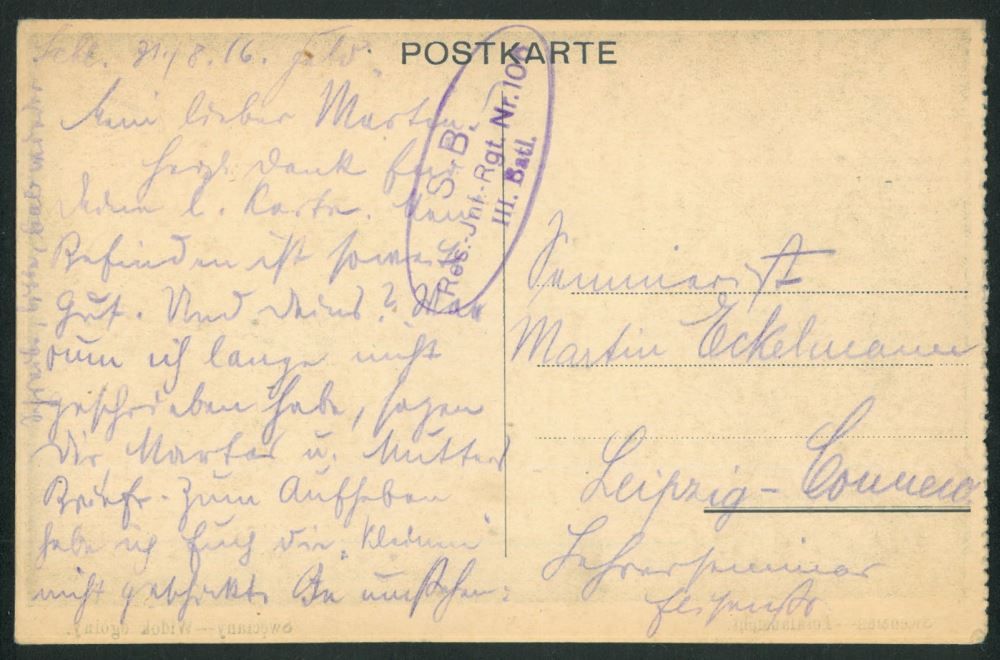 POSTKARTE
31./8. 16.
Mein lieber Martin!
Herzl. Dank für
Deine l. Karte. Mein
Befinden ist soweit
gut. Und Deins? War
rum ich lange nicht
geschrieben habe, sagen
Dir Martas u. Mutters
Briefe. Zum Aufheben
habe ich Euch die "kleinen"
nicht geschickt.
S. B.
Res.-Inf.-Rgt. Nr. 10
III. Batl.
Seminarist
Martin Eckelmann
Leipzig - Connew
Lehrerseminar
Swęciany — Widok ogólny.